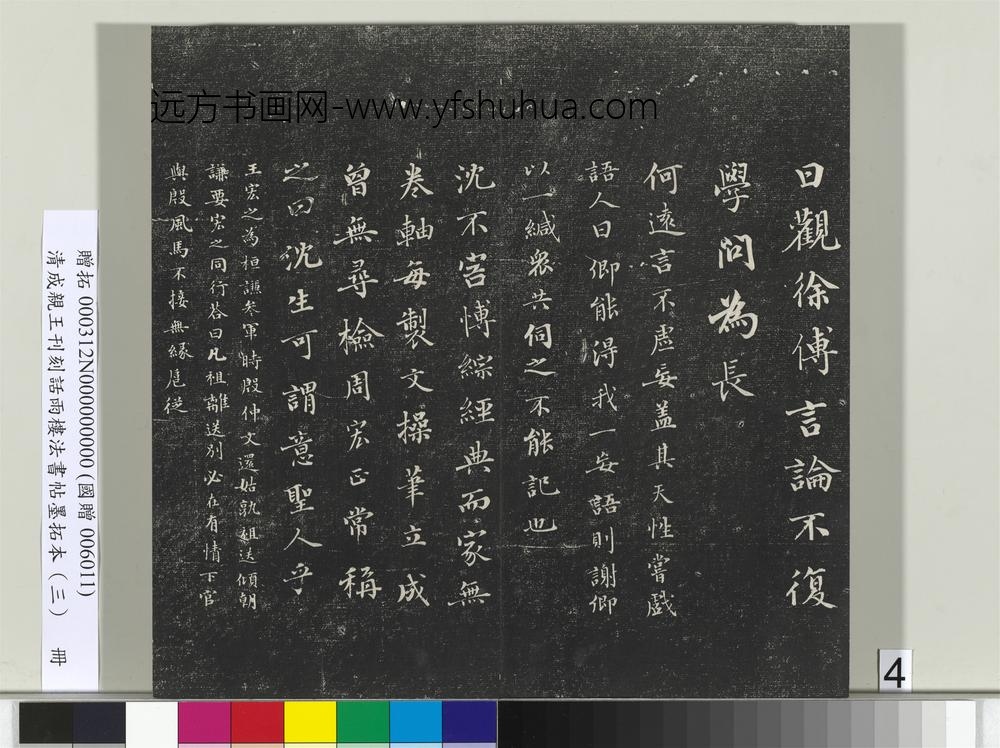 远方书画网-www.yfshuhua.com
日觀徐傅言論不復
學問為長
何遠言不虛妄蓋其天性嘗戲
語人曰卿能得我一妄語則謝卿
以一縑衆共伺之不能記也
沈不害博綜經典而家無
卷軸每製文操筆立成
曾無尋檢周宏正常稱
之曰沈生可謂意聖人乎
王宏之為桓謙參軍時殷仲文還姑孰祖送傾朝
謙要宏之同行答曰凡祖離送別必在有情下官
與殷風馬不接無緣扈從
贈拓 000312N000000000(國贈 006011)
清成親王刊刻話雨樓法書帖墨拓本(三) 冊
4